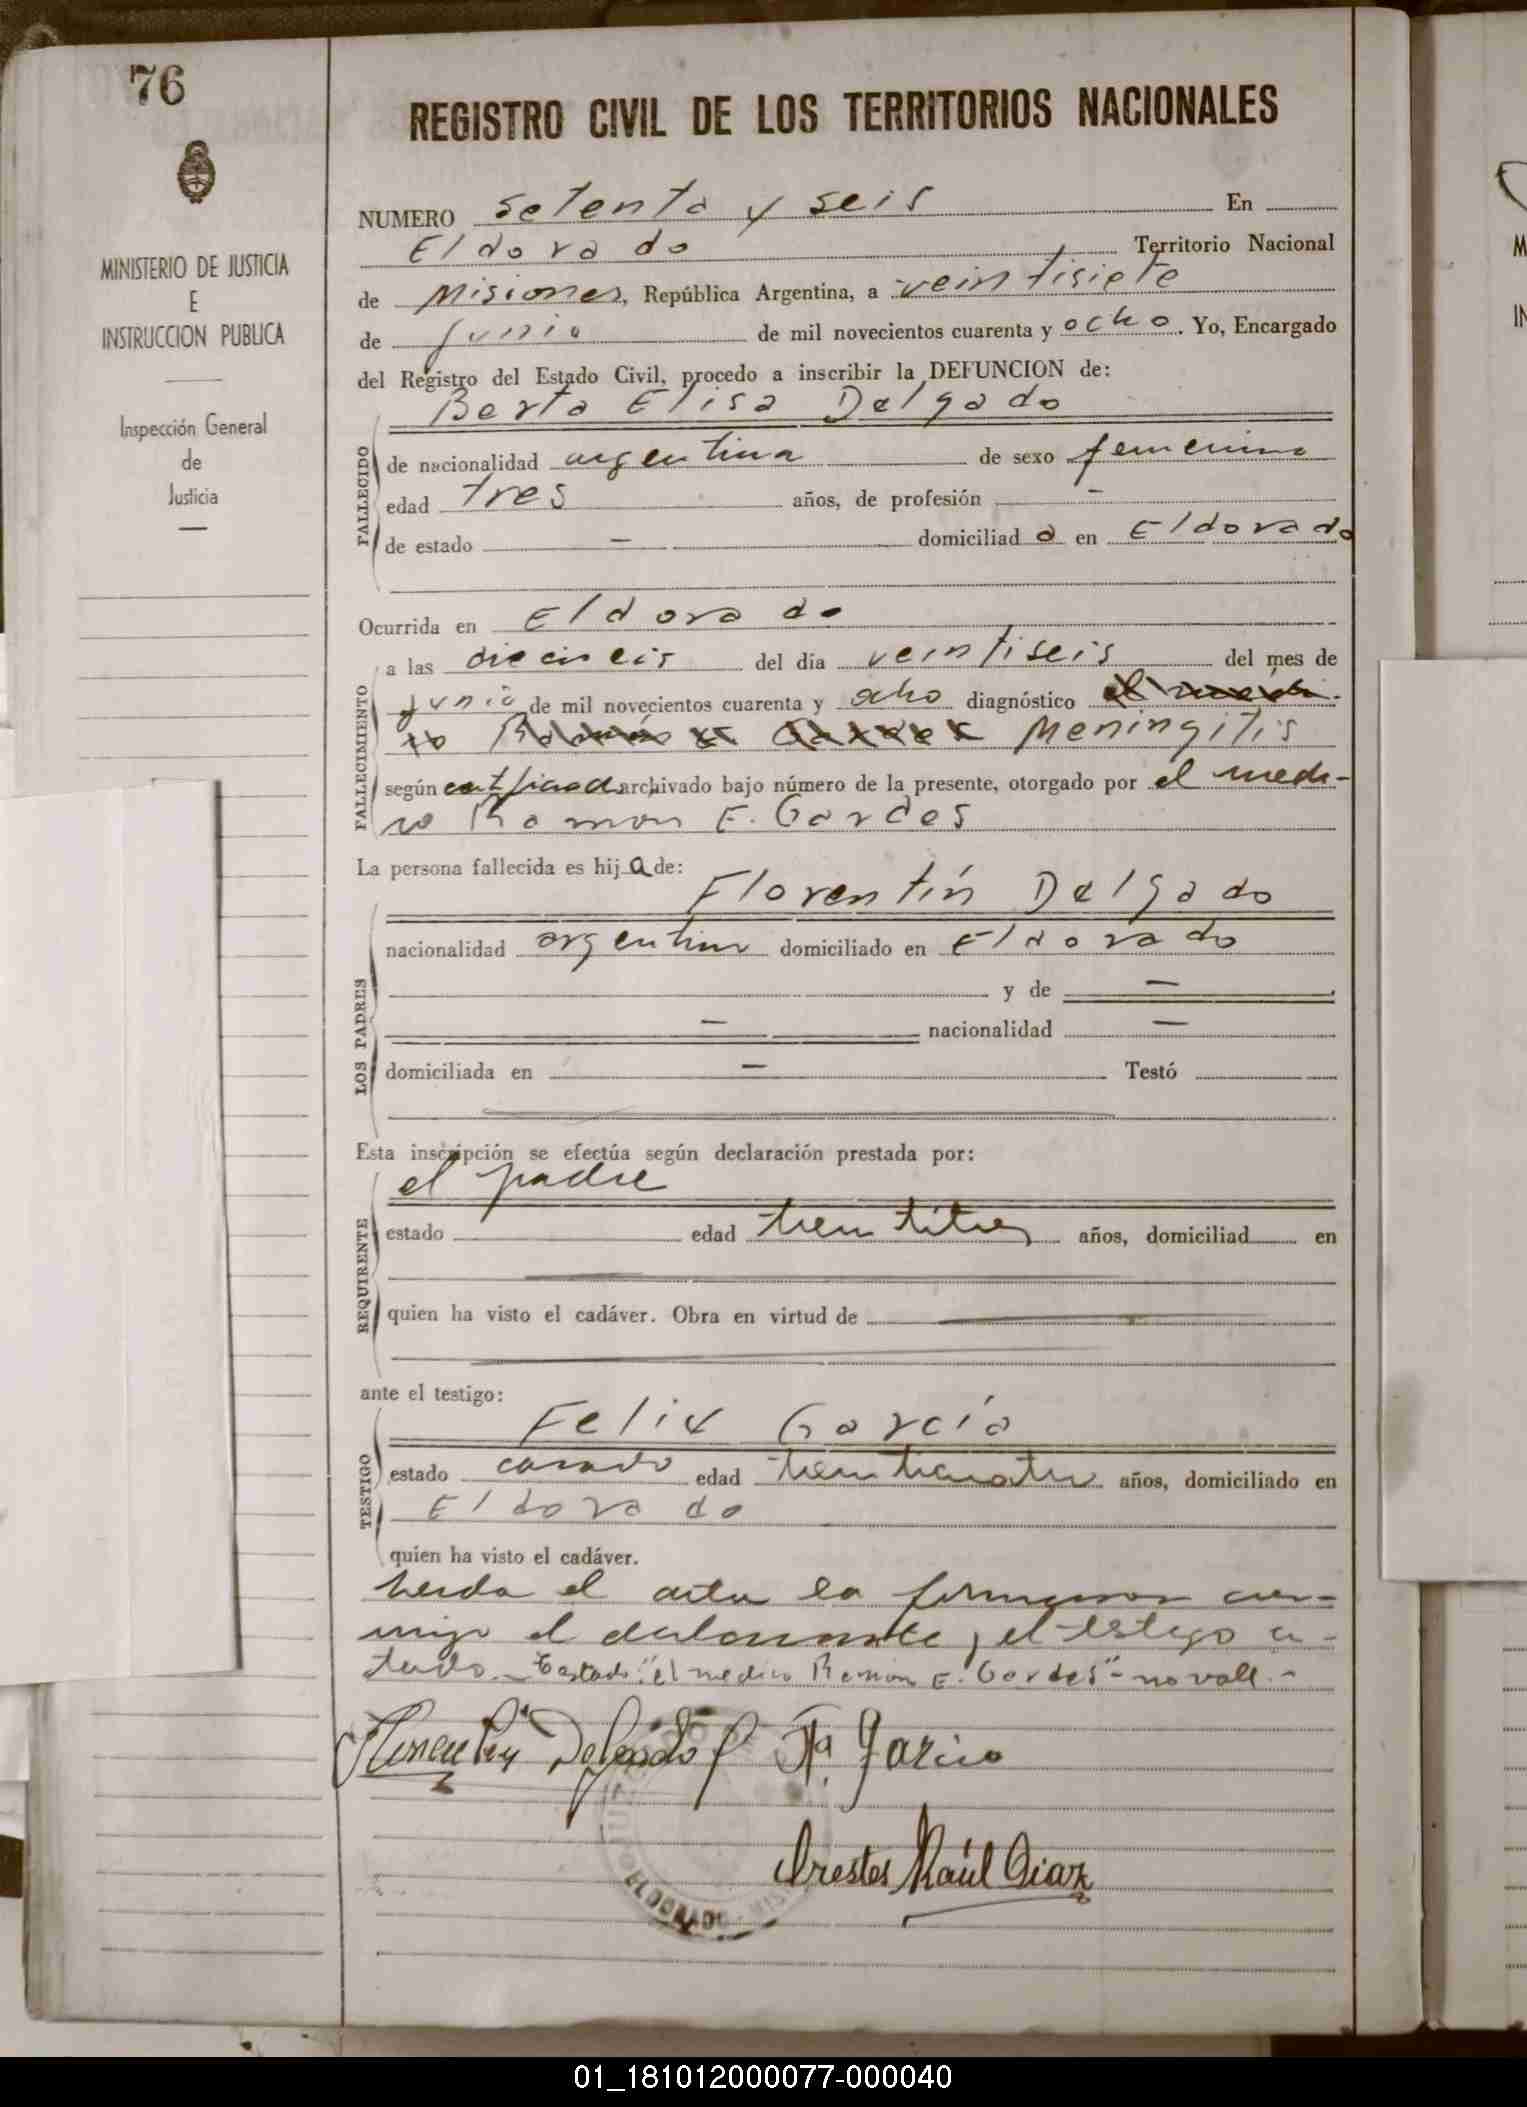 76
MINISTERIO DE JUSTICIA
E
INSTRUCCION PUBLICA
Inspección General
de
Justicia
REGISTRO CIVIL DE LOS TERRITORIOS NACIONALES
NUMERO setenta y seis En
Eldorado Territorio Nacional
de Misiones, República Argentina, a veintisiete
de junio de mil novecientos cuarenta y ocho. Yo, Encargado
del Registro del Estado Civil, procedo a inscribir la DEFUNCION de:
Berta Elisa Delgado
FALLECIDO
de nacionalidad argentina de sexo femenino
edad tres años, de profesión -
de estado - domiciliad a en Eldorado
Ocurrida en Eldorado
FALLECIMIENTO
a las dieciseis del día veintiseis del mes de
junio de mil novecientos cuarenta y ocho diagnóstico el médi-
co Ramón E. Gardes Meningitis
según certificado archivado bajo número de la presente, otorgado por el médi-
co Ramon E. Gardes
La persona fallecida es hij a de:
Florentín Delgado
LOS PADRES
nacionalidad argentino domiciliado en Eldorado
y de -
- nacionalidad -
domiciliada en - Testó
Esta inscripción se efectúa según declaración prestada por:
el padre
REQUIRENTE
estado edad treintitres años, domiciliad en
quien ha visto el cadáver. Obra en virtud de
ante el testigo:
Felix García
TESTIGO
estado casado edad treinticuatro años, domiciliado en
Eldorado
quien ha visto el cadáver.
Leida el acta la firmaron con-
migo el declarante y el testigo ci-
tado. - Testado: "el medico Ramon E. Gardes" - no vale. -
Florentin Delgado Fx. Garcia
Orestes Raúl Diaz
ELDORADO - MIS
01_181012000077-000040